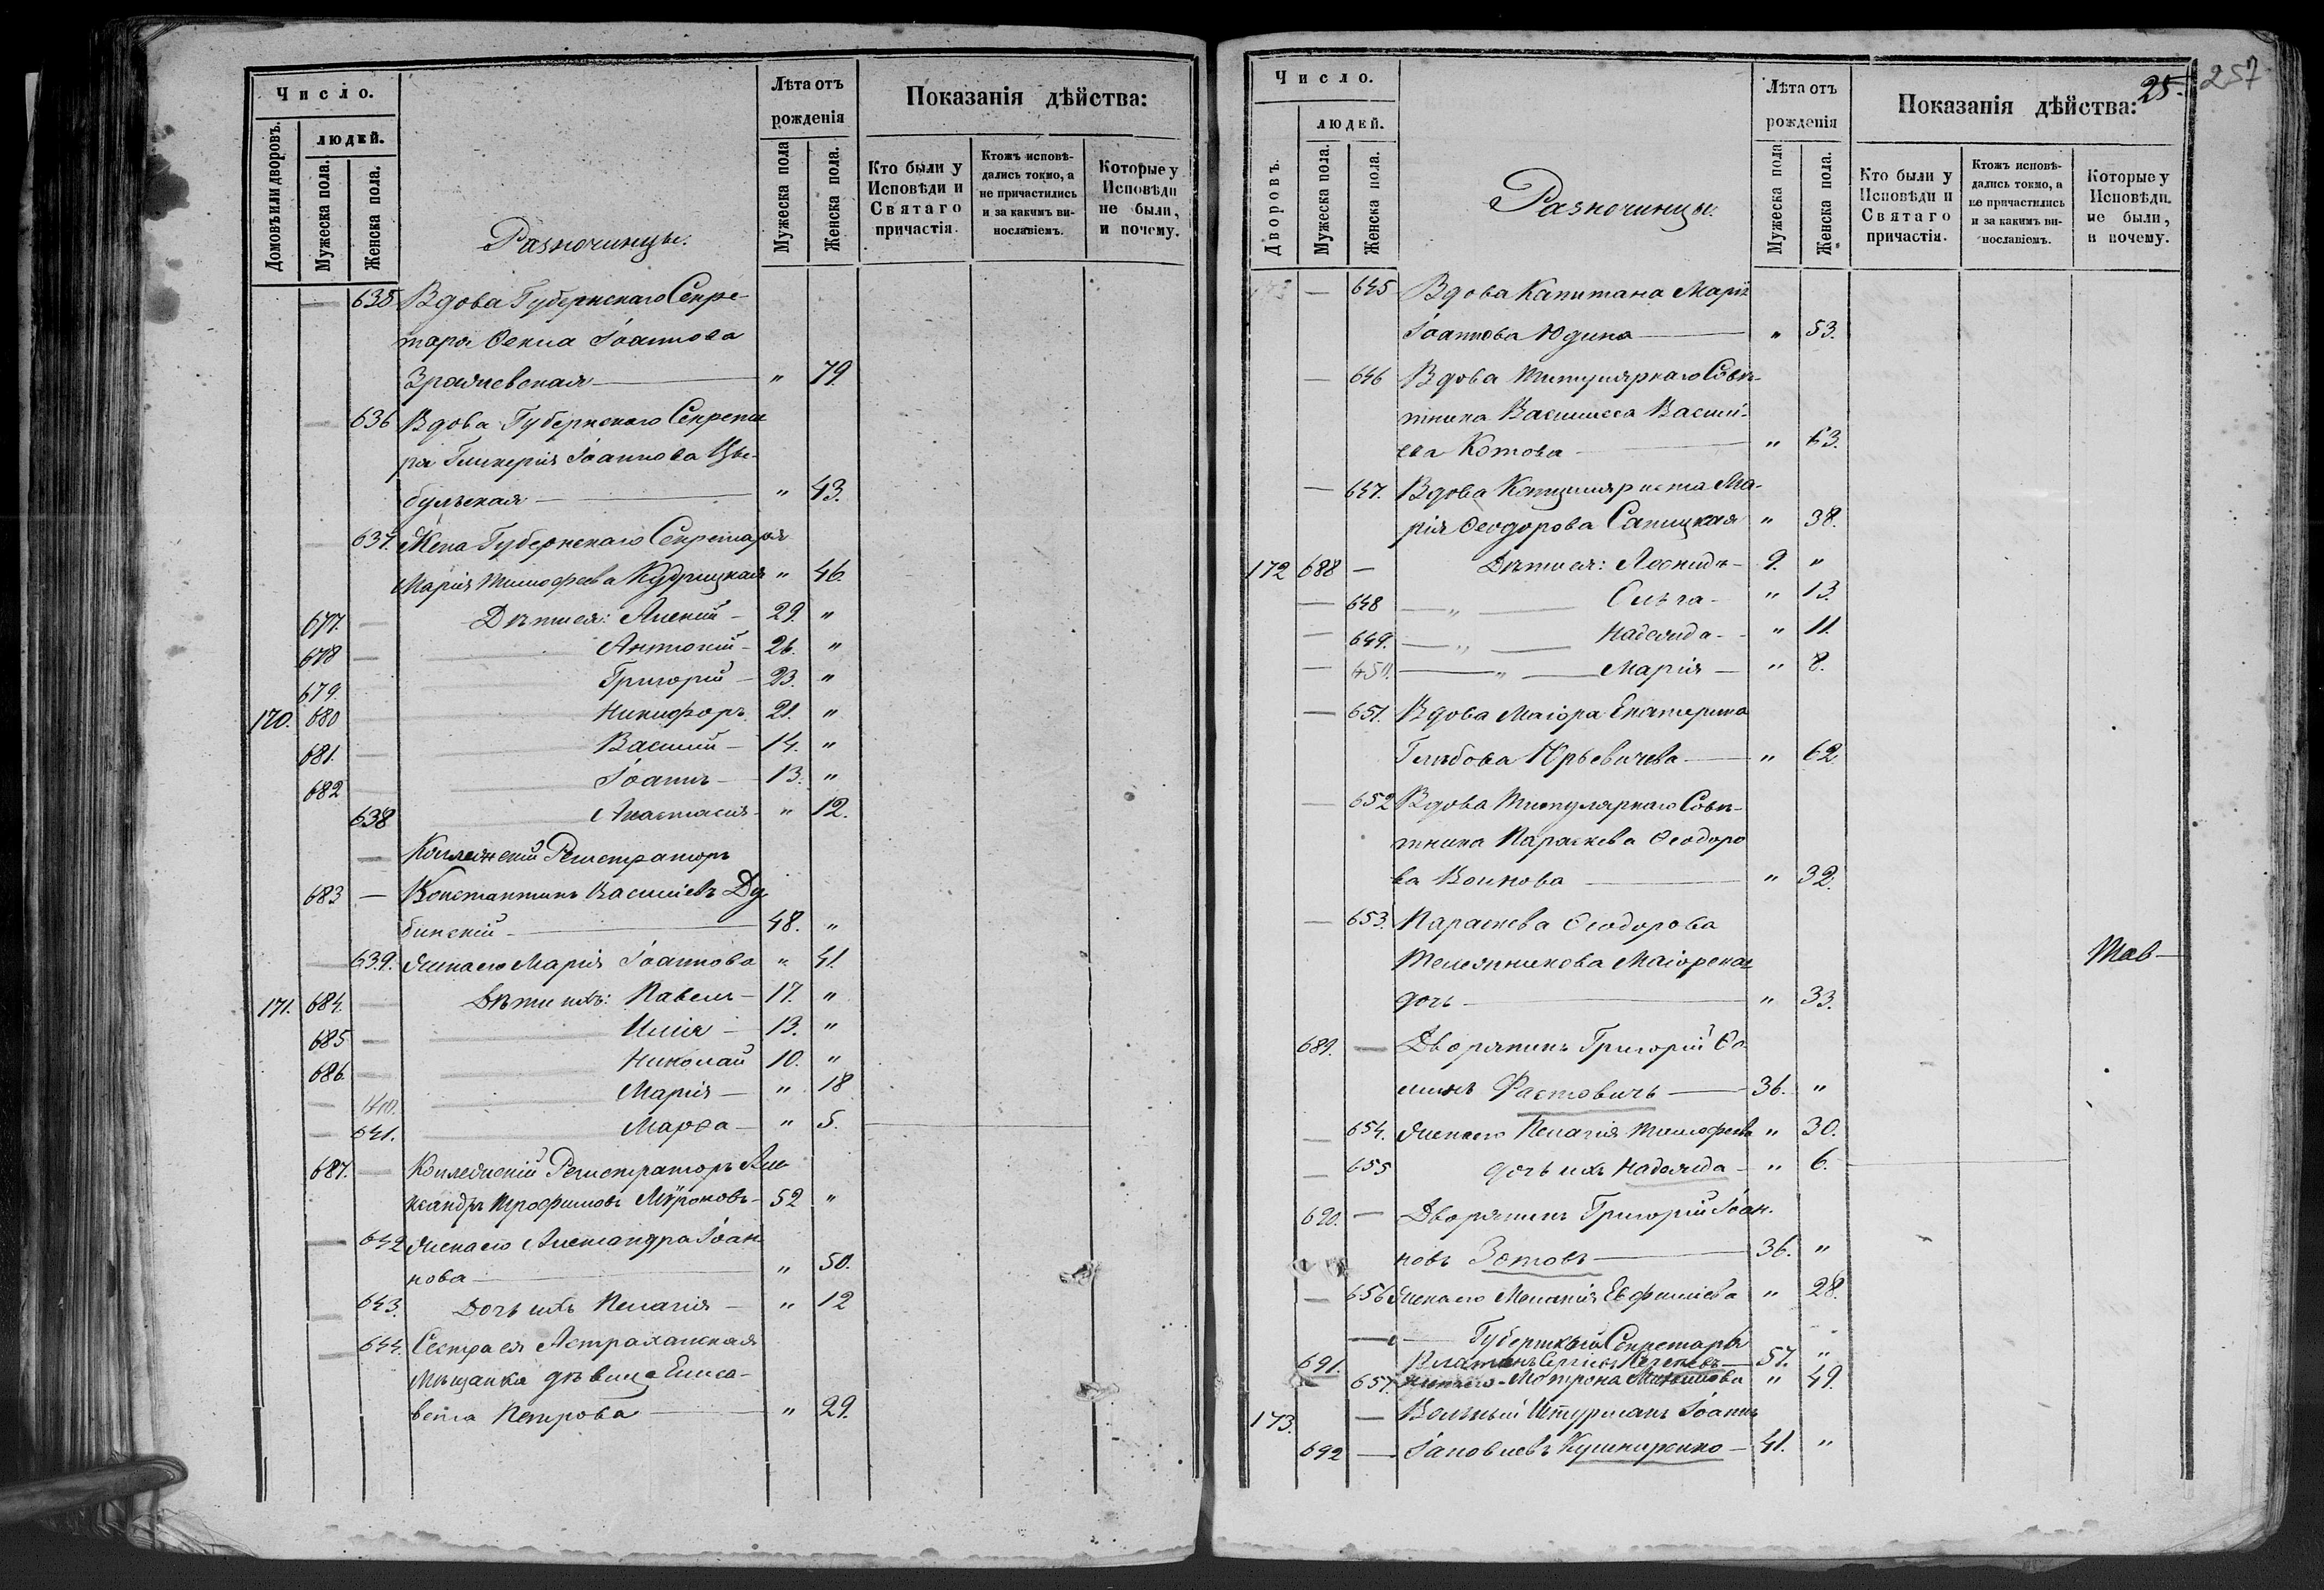 Число.
Домовъ или дворовъ.
людей.
Мужеска пола.
Женска пола.
Разночинцы.
Лѣта отъ
рожденія
Мужеска пола
Женска пола.
Показанія дѣйства:
Кто были у
Исповѣди и
Святаго
причастія.
Ктожъ исповѣ-
дались токмо, а
не причастились
и за какимъ ви-
нословіемъ.
Которые у
Исповѣди
не были,
и почему.
— 635 Вдова Губернскаго Секре-
таря Ѳекла Іоаннова
— " 79.
— 636 Вдова Губернскаго Секрета
ря Гликерія Іоаннова Цы-
бульская — " 43.
— 637. Жена Губернскаго Секретаря
Марія Тимофеева Кудрицкая " 46.
677. — Дѣти ея: Алексій — 29. "
678 — Антоній — 26. "
679. — Григорій — 23. "
170. 680 Никифоръ 21. "
681. — Василий — 14. "
682 — Іоаннъ — 13. "
638 Анастасія — " 12.
— Коллежскій Регистраторъ
683 — Константинъ Василіевъ Ду
бинскій — 48. "
— 639. Жена его Марія Іоаннова " 41.
171. 684. — Дѣти ихъ: Павелъ — 17. "
685 — Илія — 13. "
686. — Николай 10. "
— 640. Марія — " 18
— 641. Марѳа — " 5.
687. — Коллежскій Регистраторъ Але-
ксандръ Трофимовъ Мѵроновъ — 52 "
— 642 Жена его Александра Іоан-
нова — " 50.
— 643. Дочь ихъ Пелагія — " 12
— 644. Сестра ея Астраханская
Мѣщанка дѣвица Елиса-
вета Петрова — " 29.
25. 257
Число.
Дворовъ.
людей.
Мужеска пола.
Женска пола.
Разночинцы.
Лѣта отъ
рожденія
Мужеска пола
Женска пола.
Показанія дѣйства:
Кто были у
Исповѣди и
Святаго
причастія.
Ктожъ исповѣ-
дались токмо, а
не причастились
и за какимъ ви-
нословіемъ.
Которые у
Исповѣди
не были,
и почему.
— 645 Вдова Капитана Марія
Іоаннова Юдина — " 53.
— 646 Вдова Титулярнаго Совѣ-
тника Василисса Васил-
ева Котова — " 63.
— 647. Вдова Канцеляриста Ма-
рія Ѳеодорова Сапицкая " 38.
172 688 — Дѣти ея: Леонидъ — 9. "
— 648 — " — Ольга — " 13.
— 649. — " — Надежда — " 11.
— 650. — " — Марія — " 8.
— 651. Вдова Маіора Екатерина
Глѣбова Юрьевичева — " 62.
— 652 Вдова Титулярнаго Совѣ-
тника Параскева Ѳеодоро
ва Воинова — " 32.
— 653. Параскева Ѳеодорова
Маіорская
дочь — " 33.
689. — Дворянинъ Григорій Ѳо-
минъ Фастовичъ — 36. "
— 654. Жена его Пелагія Тимофеева " 30.
— 655 дочь ихъ Надежда — " 6.
690. — Дворянинъ Григорій Іоан-
новъ Зотовъ — 36. "
— 656 Жена его Меланія Евфиміева " 28.
— Губернскый Секретарь
691. Сергіевъ — 57. "
657. Жена его — Мотрона " 49.
173. — Вольный Штурманъ Іоаннъ
692 — Іаковлевъ Кушниренко — 41. "